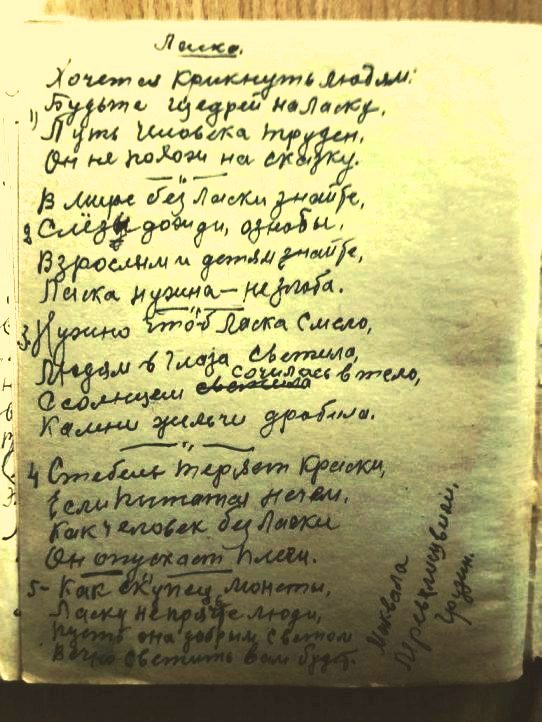 Ласка.
Хочется крикнуть людям:
Будьте щедрей на ласку,
1) Путь человека труден,
Он не похож на сказку.
В мире без ласки знайте,
2 Слёзы дожди, ознобы.
Взрослым и детям знайте,
Ласка нужна – не злоба.
3. Нужно чтоб ласка смело,
Людям в глаза светила,
С солнцем сочилась в тело,
Камни желчи дробила.
4 Стебель теряет краски,
Если питаться нечем,
Как человек без ласки
Он опускает плечи.
5- Как скупец монеты,
Ласку не прячьте люди,
Пусть она добрым светом
Вечно светить вам будет.
Маквала
Грузин.